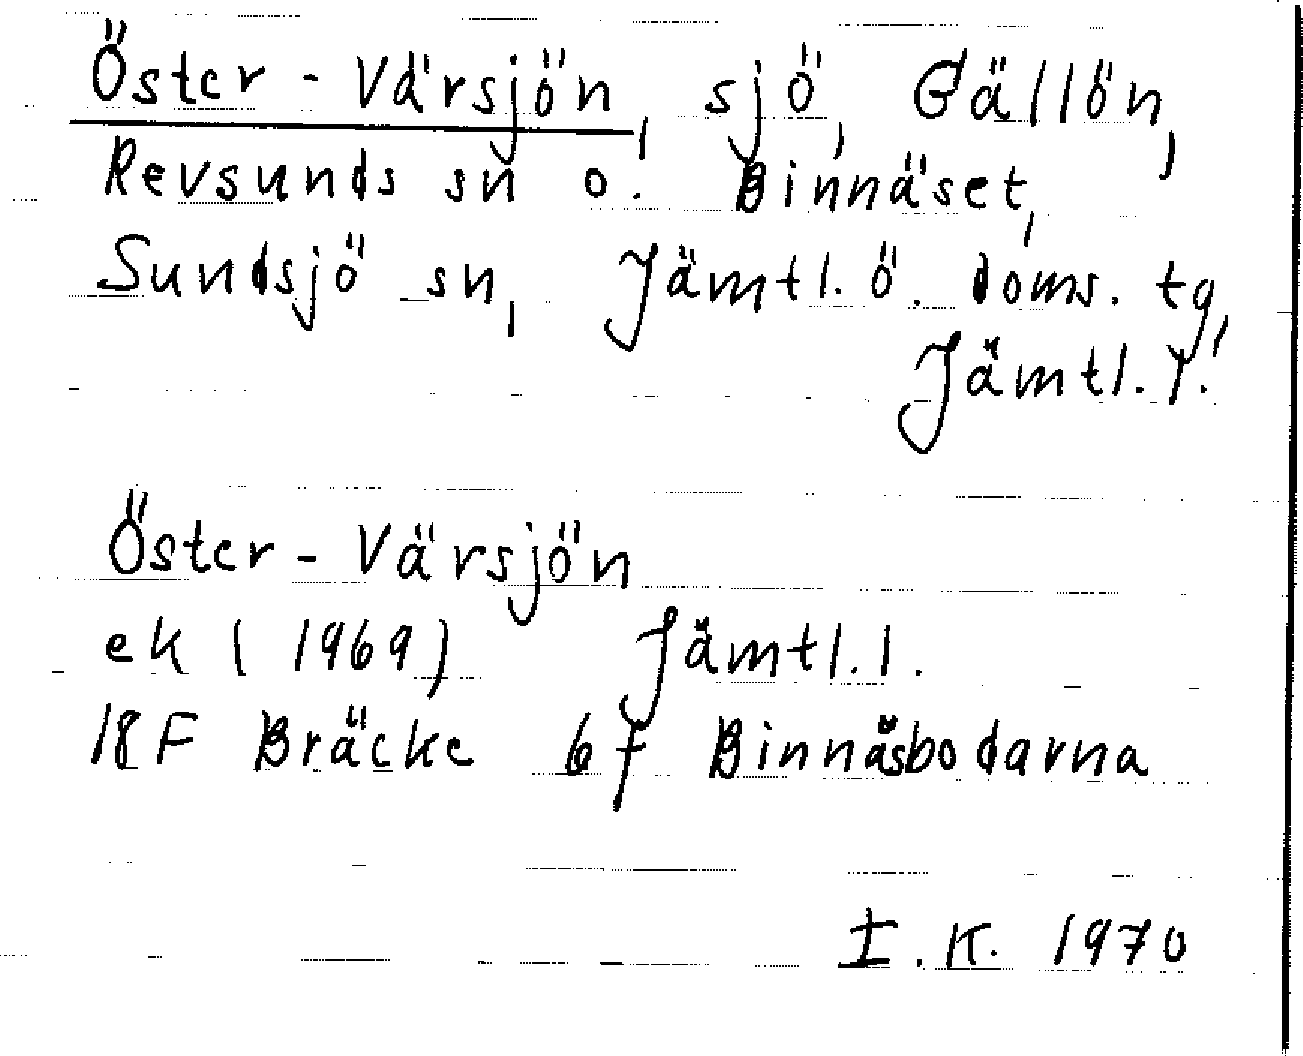 Öster-Värsjön, sjö, Gällön,
Revsunds sn o. Binnäset,
Sundsjö sn, Jämtl. ö. doms. tg,
Jämtl. l.
Öster-Värsjön
ek (1969) Jämtl. l.
18F Bräcke 6f Binnäsbodarna
I.K. 1970